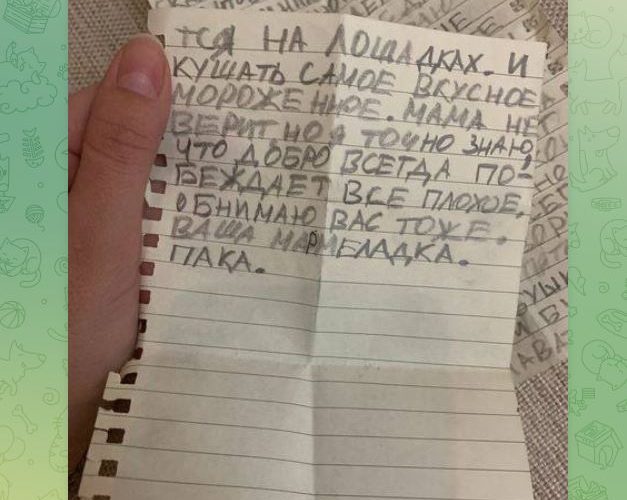 ТСЯ НА ЛОШАДКАХ. И
КУШАТЬ САМОЕ ВКУСНОЕ
МОРОЖЕННОЕ. МАМА НЕ
ВЕРИТ НО Я ТОЧНО ЗНАЮ,
ЧТО ДОБРО ВСЕГДА ПО-
БЕЖДАЕТ ВСЕ ПЛОХОЕ,
ОБНИМАЮ ВАС ТОЖЕ.
ВАША МАРМЕЛАДКА.
ПАКА.